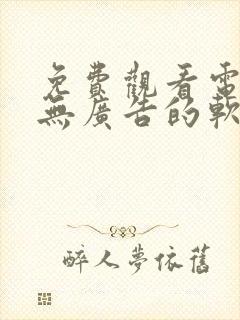 免費觀看電
無廣告的軟
醉人夢依舊